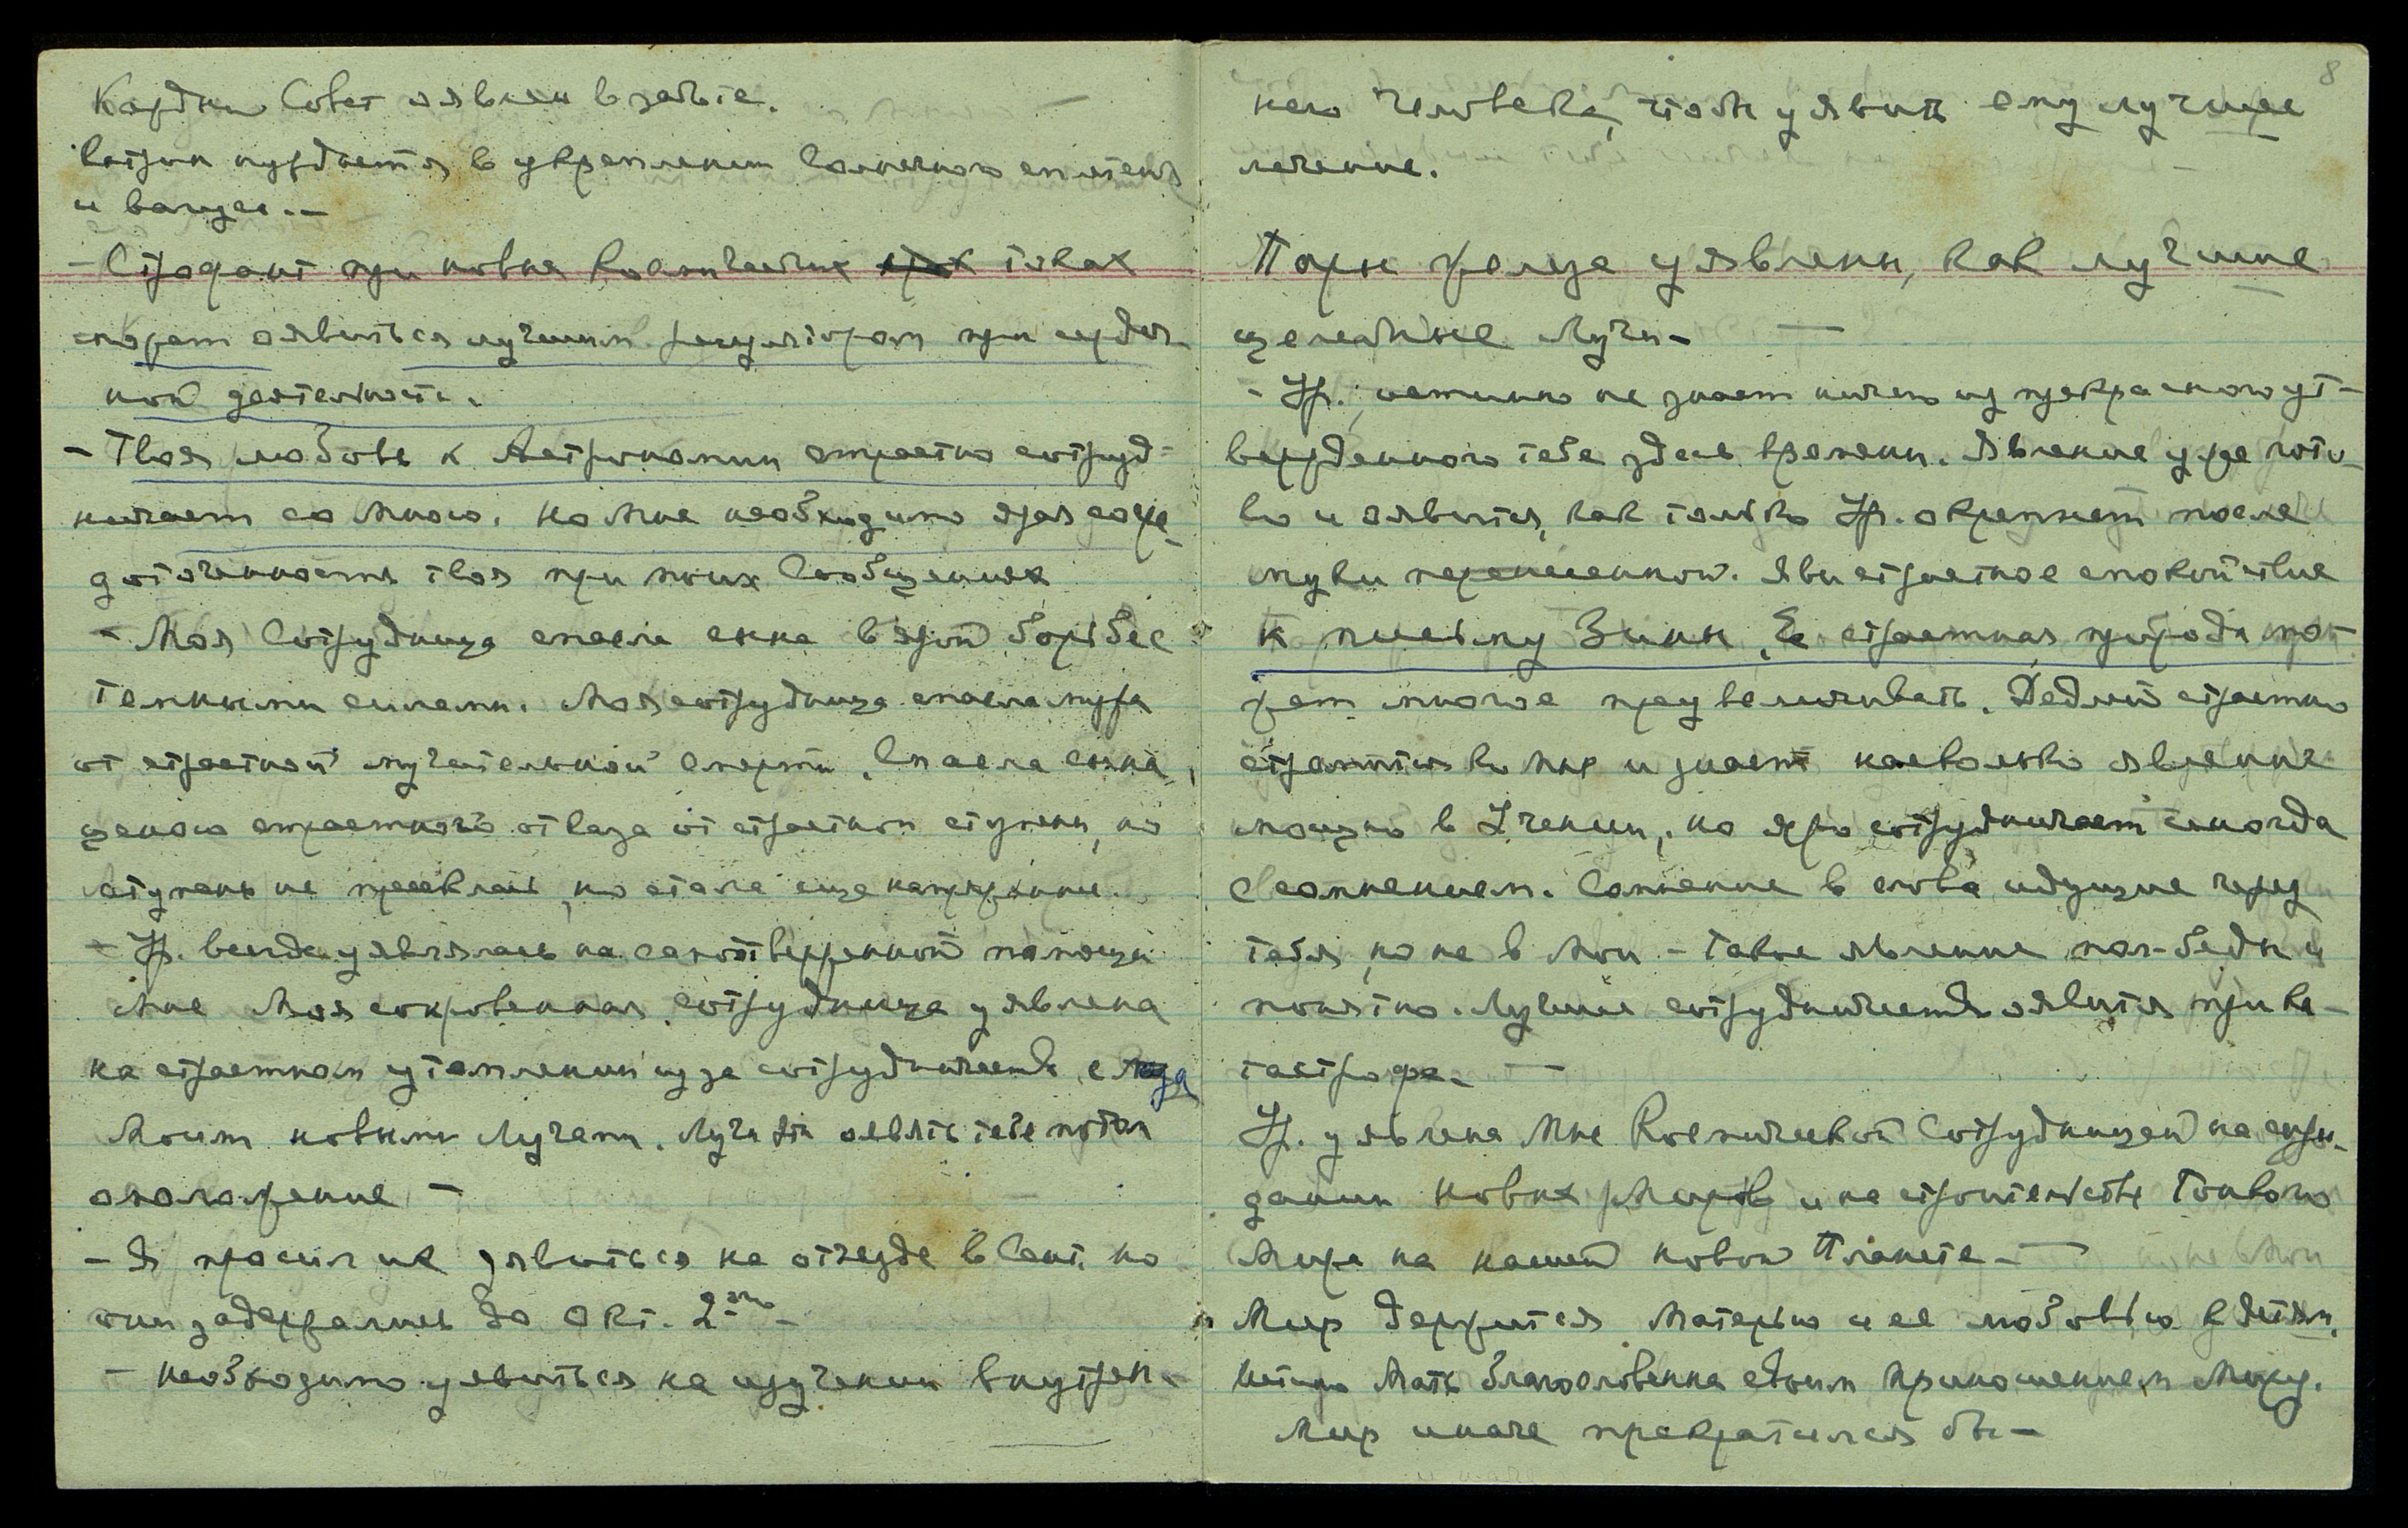 Каждый Совет оявлен в заботе.
нуждается в укреплении Солнечного сплетения
и вагуса. —
— Строфант при новых Космических токах
может оявиться лучшим регулятором при сердеч-
ной деятельности.
— Твоя любовь к Астрономии страстно сотруд-
ничает со Мною. Но Мне необходимо ярая сосре-
доточенность твоя при моих Сообщениях
— Моя Сотрудница спасла сына в ярой борьбе с
темными силами. Моя сотрудница спасла мужа
от страстной мучительной смерти. Спасла сына,
ценою страстного отказа от страстной ступени, но
ступень не пресеклась, но стала еще напряженнее.
— Ур. всегда уявлялась на самоотверженной помощи
Мне Моя сокровенная сотрудница уявлена
на страстном утомлении из за сотрудничества с
Моими новыми Лучами. Лучи эти оявят тебе потом
омоложение —
— Я просил их уявиться на отъезде в Сент. но
они задержались до Окт. 2го —
— Необходимо уявиться на изучении внутрен-
8
него человека, чтобы уявить ему лучшее
лечение.
Пары железа уявлены, как лучшие
целебные Лучи —
— Ур. истинно не знает ничего из прекрасного ут-
вержденного тебе здесь времени. Явление уже гото-
во и оявится, как только Ур. окрепнет после
муки перенесенной. Яви страстное спокойствие
к письму Зины. Ее страстная природа мо-
жет многое преувеличивать. Дедлий страстно
стремится ко Мне и знает насколько явление
мощно в Учении, но яро сотрудничает иногда
с сомнением. Сомнение в слова идущие через
тебя, но не в Мои — такое явление пол-беды и
понятно. Лучшее сотрудничество оявится при ка-
тастрофе. —
Ур. уявлена Мне Космической Сотрудницей на созы-
дании Новых Миров и на строительстве Тонкого
Мира на нашей новой Планете —
Мир держится Матерью и ее любовью к детям.
Мать благословенна своим приношением Миру.
Мир иначе прекратился бы —